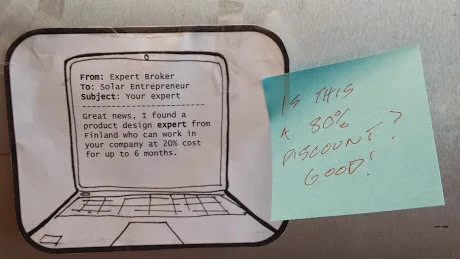 From: Expert Broker
To: Solar Entrepreneur
Subject: Your expert
-----------------------
Great news, I found a
product design expert from
Finland who can work in
your company at 20% cost
for up to 6 months.
IS THIS
A 80%
DISCOUNT?
GOOD!